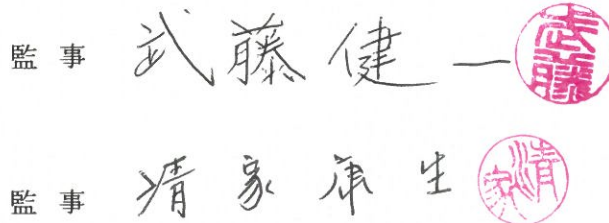 監事 武藤健一 武藤
監事 清家康生 清家